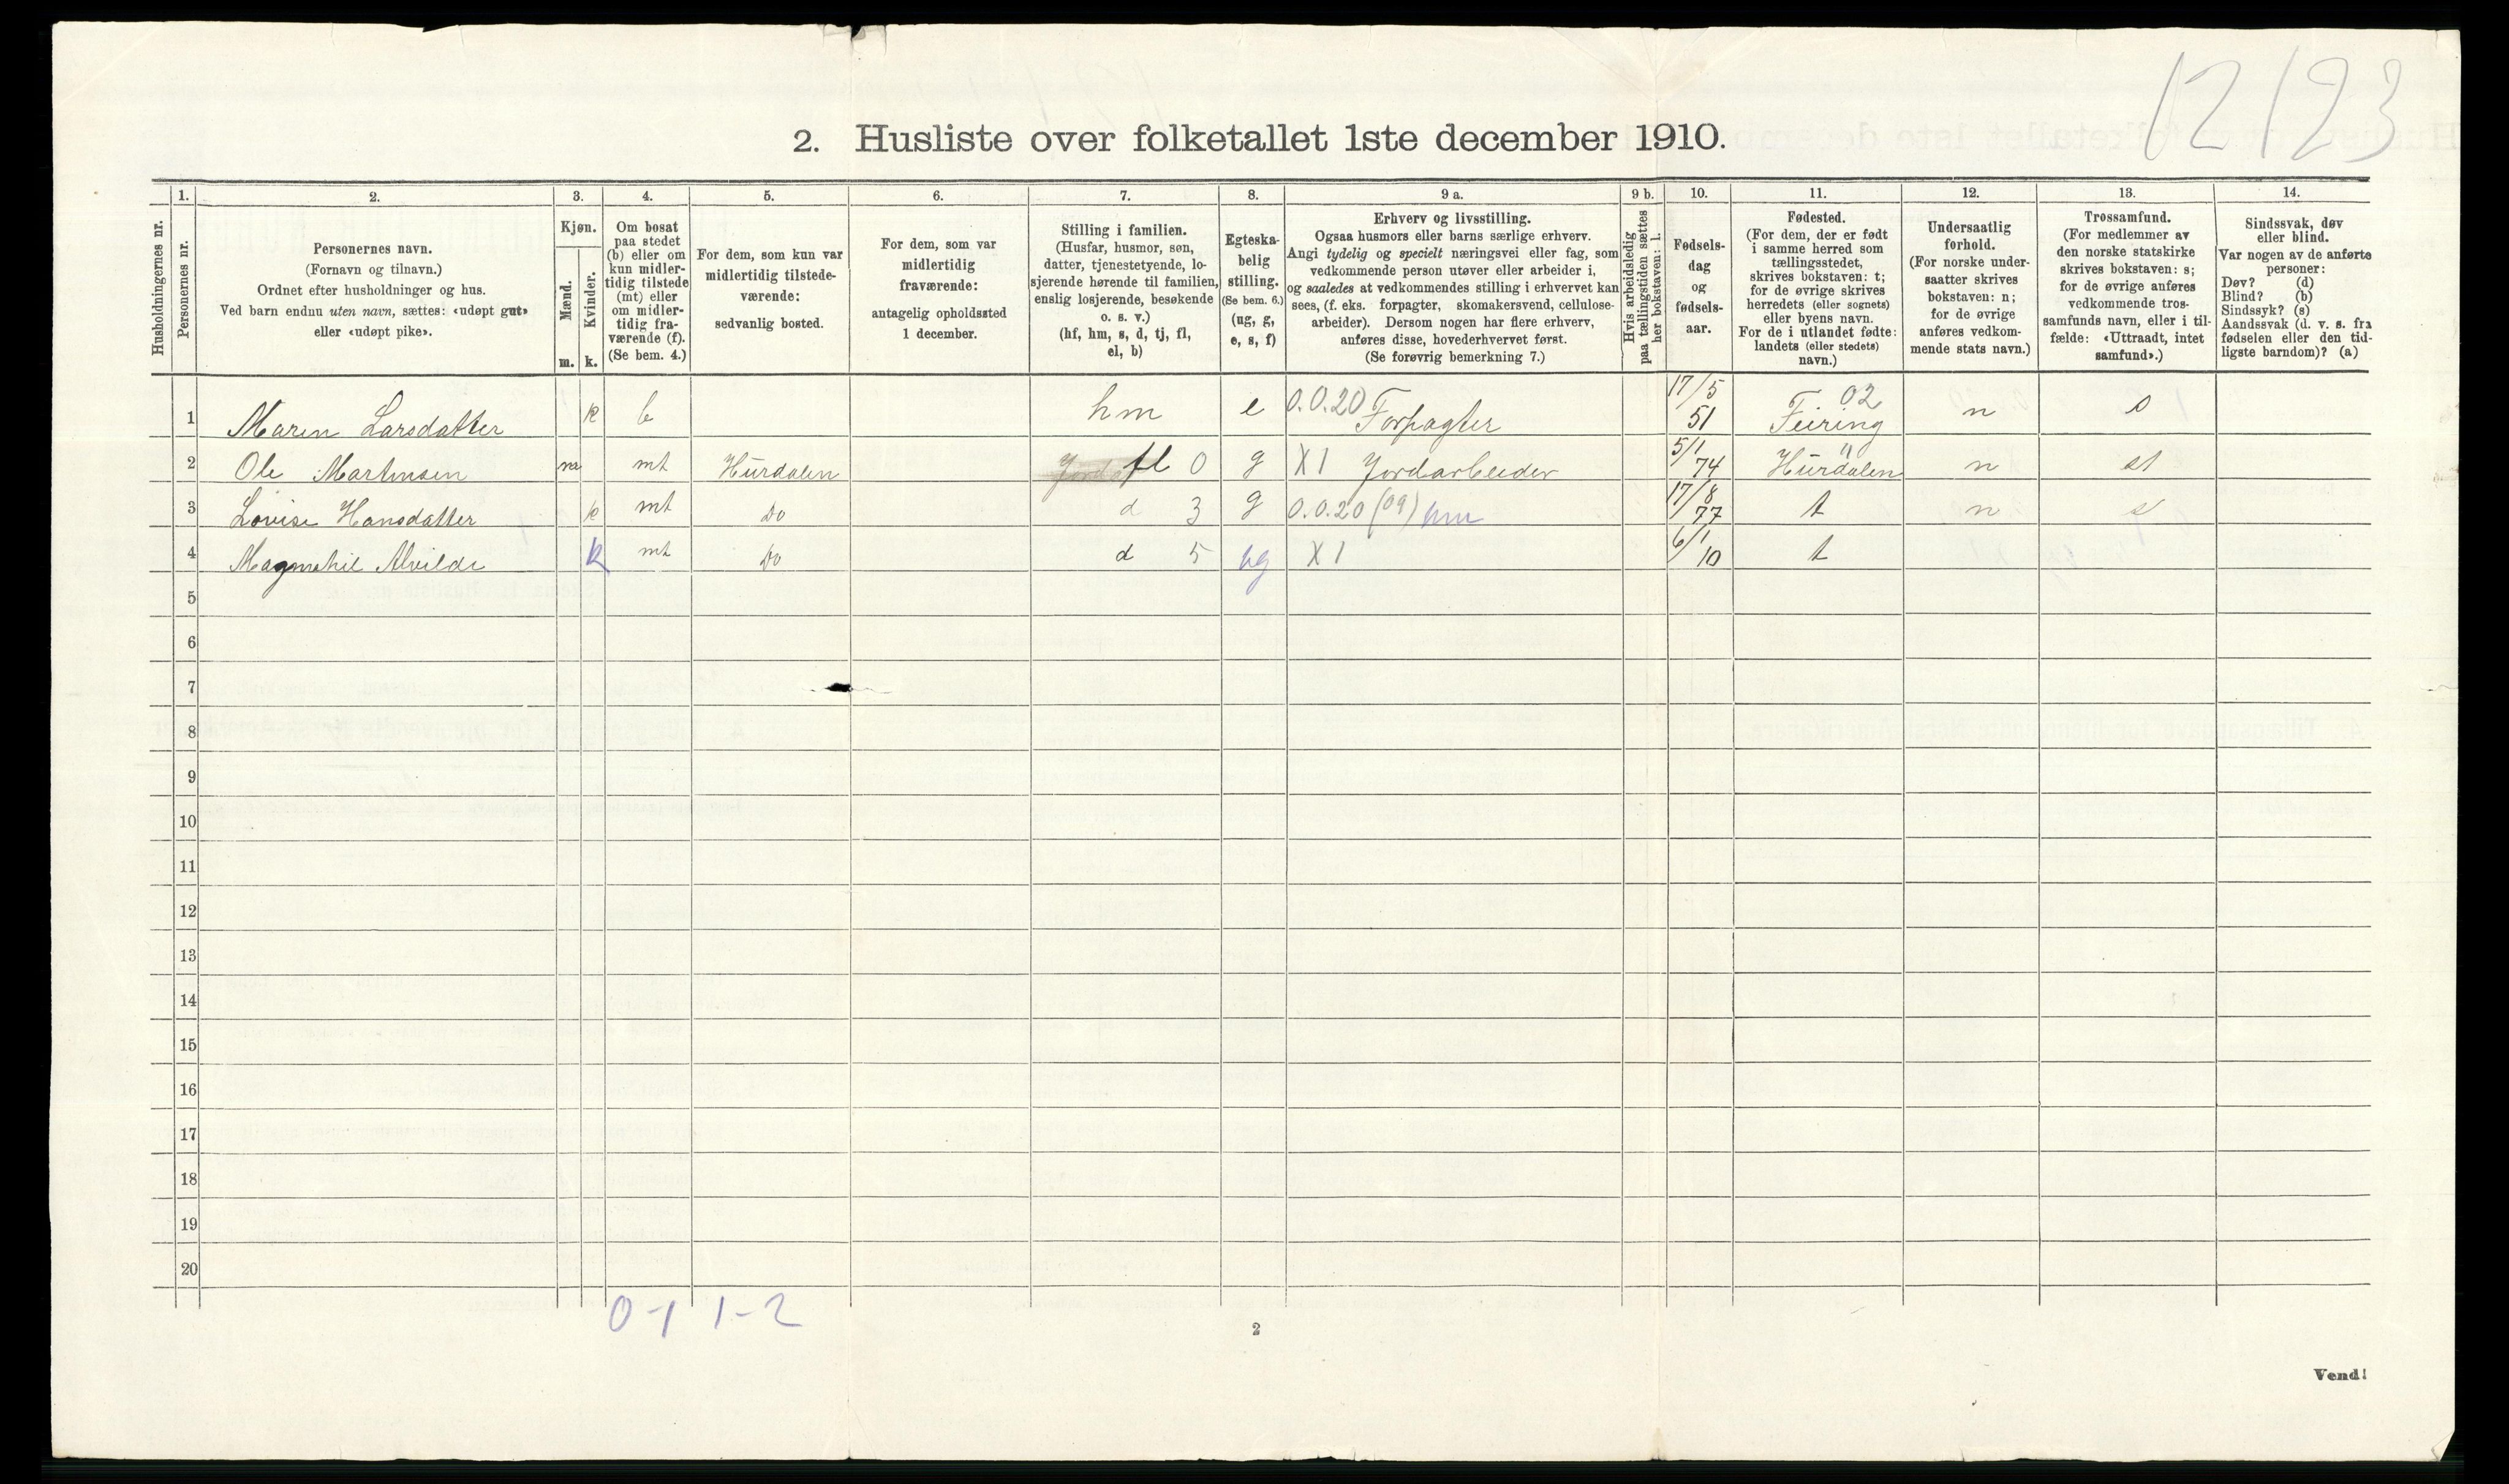 12123
2. Husliste over folketallet 1ste december 1910.
Husholdningernes nr.
1. Personernes nr.
2. Personernes navn.
(Fornavn og tilnavn.)
Ordnet efter husholdninger og hus.
Ved barn endnu uten navn, sættes: «udøpt gut»
eller «udøpt pike».
3. Kjøn.
Mænd. m.
Kvinder. k.
4. Om bosat
paa stedet
(b) eller om
kun midler-
tidig tilstede
(mt) eller
om midler-
tidig fra-
værende (f).
(Se bem. 4.)
5. For dem, som kun var
midlertidig tilstede-
værende:
sedvanlig bosted.
6. For dem, som var
midlertidig
fraværende:
antagelig opholdssted
1 december.
7. Stilling i familien.
(Husfar, husmor, søn,
datter, tjenestetyende, lo-
sjerende hørende til familien,
enslig losjerende, besøkende
o. s. v.)
(hf, hm, s, d, tj, fl,
el, b)
8. Egteska-
belig
stilling.
(Se bem. 6.)
(ug, g,
e, s, f)
9 a. Erhverv og livsstilling.
Ogsaa husmors eller barns særlige erhverv.
Angi tydelig og specielt næringsvei eller fag, som
vedkommende person utøver eller arbeider i,
og saaledes at vedkommendes stilling i erhvervet kan
sees, (f. eks. forpagter, skomakersvend, cellulose-
arbeider). Dersom nogen har flere erhverv,
anføres disse, hovederhvervet først.
(Se forøvrig bemerkning 7.)
9 b. Hvis arbeidsledig
paa tællingstiden sættes
her bokstaven: l.
10. Fødsels-
dag
og
fødsels-
aar.
11. Fødested.
(For dem, der er født
i samme herred som
tællingsstedet,
skrives bokstaven: t;
for de øvrige skrives
herredets (eller sognets)
eller byens navn.
For de i utlandet fødte:
landets (eller stedets)
navn.)
12. Undersaatlig
forhold.
(For norske under-
saatter skrives
bokstaven: n;
for de øvrige
anføres vedkom-
mende stats navn.)
13. Trossamfund.
(For medlemmer av
den norske statskirke
skrives bokstaven: s;
for de øvrige anføres
vedkommende tros-
samfunds navn, eller i til-
fælde: «Uttraadt, intet
samfund».)
14. Sindssvak, døv
eller blind.
Var nogen av de anførte
personer:
Døv? (d)
Blind? (b)
Sindssyk? (s)
Aandssvak (d. v. s. fra
fødselen eller den tid-
ligste barndom)? (a)
1 Maren Larsdatter k b hm e 0.0.20 Forpagter 17/5 51 Feiring 02 n s
2 Ole Martinsen m mt Hurdalen fl 0 g X1 Jordarbeider 5/1 74 Hurdalen " n st
3 Lovise Hansdatter k mt Do d 3 g 0.0.20 (09) hm 17/8 77 t n s
4 Magnhil Alvilde k mt Do d 5 ug X1 6/1 10 t
5
6
7
8
9
10
11
12
13
14
15
16
17
18
19
20
0-1 1-2
2
Vend!